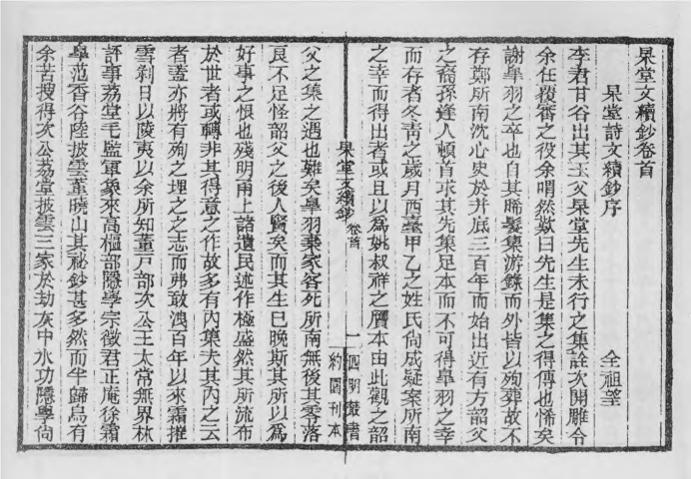 杲堂文續鈔卷首
杲堂詩文續鈔序
全祖望
李君甘谷出其王父杲堂先生未行之集詮次開雕令
余任覆審之役余喟然歎曰先生是集之得傳也悕矣
謝臯羽之卒也自其晞髮集游錄而外皆以殉葬故不
存鄭所南沈心史於井底三百年而始出近有方韶父
之裔孫逢人頓首求其先集足本而不可得臯羽之幸
而存者冬青之歲月西臺甲乙之姓氏尙成疑案所南
之幸而得出者或且以為姚叔祥之贋本由此觀之韶
杲堂文續鈔
卷首
一
四明叢書
約園刊本
父之集之遇也難矣臯羽棄家客死所南無後其零落
良不足怪韶父之後人賢矣而其生已晚斯其所以為
好事之恨也殘明甬上諸遺民述作極盛然其所流布
於世者或轉非其得意之作故多有內集夫其內之云
者蓋亦將有殉之埋之之志而弗敢洩百年以來霜摧
雪剝日以陵夷以余所知董戸部次公王太常無界林
評事荔堂毛監軍象來高樞部隱學宗徵君正庵徐霜
臯范香谷陸披雲董曉山其祕鈔甚多然而半歸烏有
余苦搜得次公荔堂披雲三家於劫灰中水功隱學尙